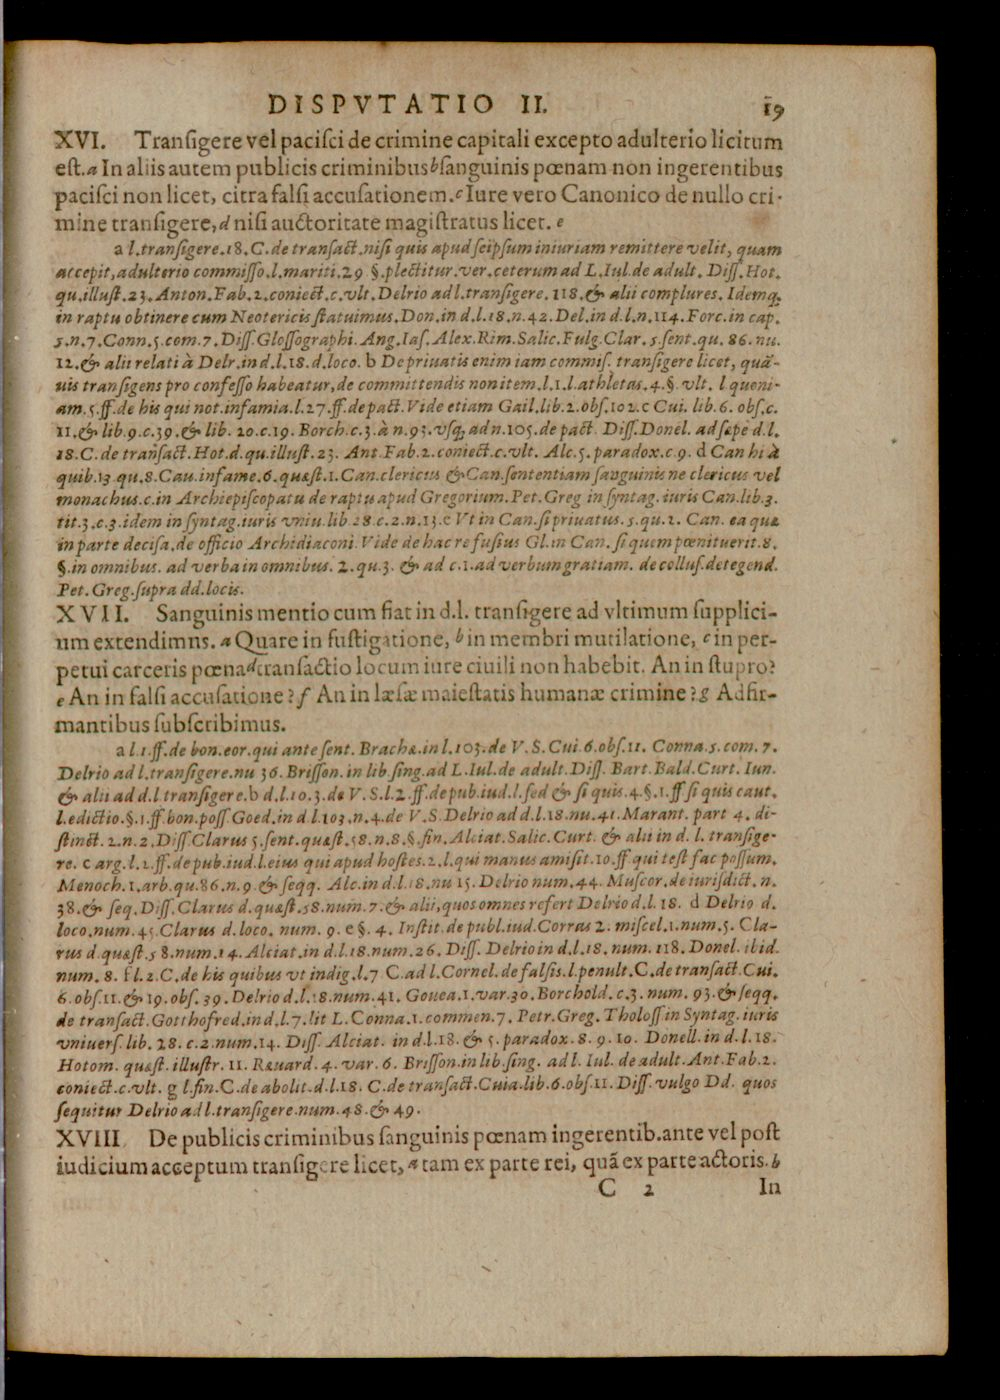 DISPVTATIO II. 19
XVI. Tranſigere vel paciſci de crimine capitali excepto adulterio licitum
eſt. a In aliis autem publicis criminibus b ſanguinis pœnam non ingerentibus
paciſci non licet, citra falſi accuſationem. c Iure vero Canonico de nullo cri-
mine tranſigere, d niſi auctoritate magiſtratus licet. e
a l. tranſigere. 18. C. de tranſact. niſi quis apud ſeipſum iniuriam remittere velit, quam
accepit, adulterio commiſſo. l. mariti. 29 §. plectitur. ver. ceterum ad L. Iul. de adult. Diſſ. Hot.
qu. illuſt. 23. Anton. Fab. 2. coniect. c. vlt. Delrio ad l. tranſigere. 118. & alii complures. Idemq́.
in raptu obtinere cum Neotericis ſtatuimus. Don. in d. l. 18. n. 42. Del. in d. l. n. 114. Forc. in cap.
5. n. 7. Conn. 5. com. 7. Diſſ. Gloſſographi. Ang. Iaſ. Alex. Rim. Salic. Fulg. Clar. 5. ſent. qu. 86. nu.
12. & alii relati à Delr. in d. l. 18. d. loco. b De priuatis enim iam commiſ. tranſigere licet, quã-
uis tranſigens pro confeſſo habeatur, de committendis non item. l. 1. l. athletas. 4. §. vlt. l queni-
am. 5. ff. de his qui not. infamia. l. 27. ff. de pact. Vide etiam Gail. lib. 2. obſ. 102. c Cui. lib. 6. obſ. c.
11. & lib. 9. c. 39. & lib. 20. c. 19. Borch. c. 3. à n. 93. vſq́ ad n. 105. de pact. Diſſ. Donel. ad ſæpe d. l.
18. C. de tranſact. Hot. d. qu. illuſt. 23. Ant. Fab. 2. coniect. c. vlt. Alc. 5. paradox. c. 9. d Can hi à
quib. 13 qu. 8. Cau. infame. 6. quæſt. 1. Can. clericus & Can. ſententiam ſanguinis ne clericus vel
monachus. c. in Archiepiſcopatu de raptu apud Gregorium. Pet. Greg in ſyntag. iuris Can. lib. 3.
tit. 3. c. 3. idem in ſyntag. iuris vniu. lib 28. c. 2. n. 13. e Vt in Can. ſi priuatus. 5. qu. 2. Can. ea quæ
in parte deciſa. de officio Archidiaconi. Vide de hac re fuſius Gl. in Can. ſi quem pœnituerit. 8.
§. in omnibus. ad verba in omnibus. 2. qu. 3. & ad c. 1. ad verbum gratiam. de colluſ. detegend.
Pet. Greg. ſupra dd. locis.
XVII. Sanguinis mentio cum fiat in d. l. tranſigere ad vltimum ſupplici-
um extendimns. a Quare in fuſtigatione, b in membri mutilatione, c in per-
petui carceris pœna d tranſactio locum iure ciuili non habebit. An in ſtupro?
e An in falſi accuſatione? f An in læſæ maieſtatis humanæ crimine? g Adfir-
mantibus ſubſcribimus.
a l. 1. ff. de bon. eor. qui ante ſent. Brachæ. in l. 103. de V. S. Cui. 6. obſ. 11. Conna. 5. com. 7.
Delrio ad l. tranſigere. nu 36. Briſſon. in lib ſing. ad L. Iul. de adult. Diſſ. Bart. Bald. Curt. Iun.
& alii ad d. l tranſigere. b d. l. 10. 3. de V. S. l. 2. ff. de pub. iud. l. ſed & ſi quis. 4. §. 1. ff ſi quis caut.
l. edictio. §. 1. ff. bon. poſſ. Goed. in d. l. 103. n. 4. de V. S. Delrio ad d. l. 18. nu. 41. Marant. part 4. di-
ſtinct. 2. n. 2. Diſſ. Clarus 5. ſent. quæſt. 58. n. 8. §. fin. Alciat. Salic. Curt. & alii in d. l. tranſige-
re. c arg. l. 2. ff. de pub. iud. l. eius qui apud hoſtes. 2. l. qui manus amiſit. 10. ff qui teſt fac poſſum.
Menoch. 1. arb. qu. 86. n. 9. & ſeqq. Alc. in d. l. 18. nu 15. Delrio num. 44. Muſcor. de iuriſdict. n.
38. & ſeq. Diſſ. Clarus d. quæſt. 58. num. 7. & alii, quos omnes refert Delrio d. l. 18. d Delrio d.
loco. num. 45. Clarus d. loco. num. 9. e §. 4. Inſtit. de publ. iud. Corras 2. miſcel. 1. num. 5. Cla-
rus d. quæſt. 58. num. 14. Alciat. in d. l. 18. num. 26. Diſſ. Delrio in d. l. 18. num. 118. Donel. ibid.
num. 8. f l. 2. C. de his quibus vt indig. l. 7 C. ad l. Cornel. de falſis. l. penult. C. de tranſact. Cui.
6. obſ. 11. & 19. obſ. 39. Delrio d. l. 18. num. 41. Gouea. 1. var. 30. Borchold. c. 3. num. 93. & ſeqq.
de tranſact. Gotthofred. in d. l. 7. lit L. Conna. 1. commen. 7. Petr. Greg. Tholoſſ in Syntag. iuris
vniuerſ. lib. 28. c. 2. num. 14. Diſſ. Alciat. in d. l. 18. & 5. paradox. 8. 9. 10. Donell. in d. l. 18.
Hotom. quæſt. illuſtr. 11. Ræuard. 4. var. 6. Briſſon. in lib. ſing. ad l. Iul. de adult. Ant. Fab. 2.
coniect. c. vlt. g l. fin. C. de abolit. d. l. 18. C. de tranſact. Cuia. lib. 6. obſ. 11. Diſſ. vulgo Dd. quos
ſequitur Delrio ad l. tranſigere. num. 48. & 49.
XVIII. De publicis criminibus ſanguinis pœnam ingerentib. ante vel poſt
iudicium acceptum tranſigere licet, a tam ex parte rei, quã ex parte actoris. b
C 2 In